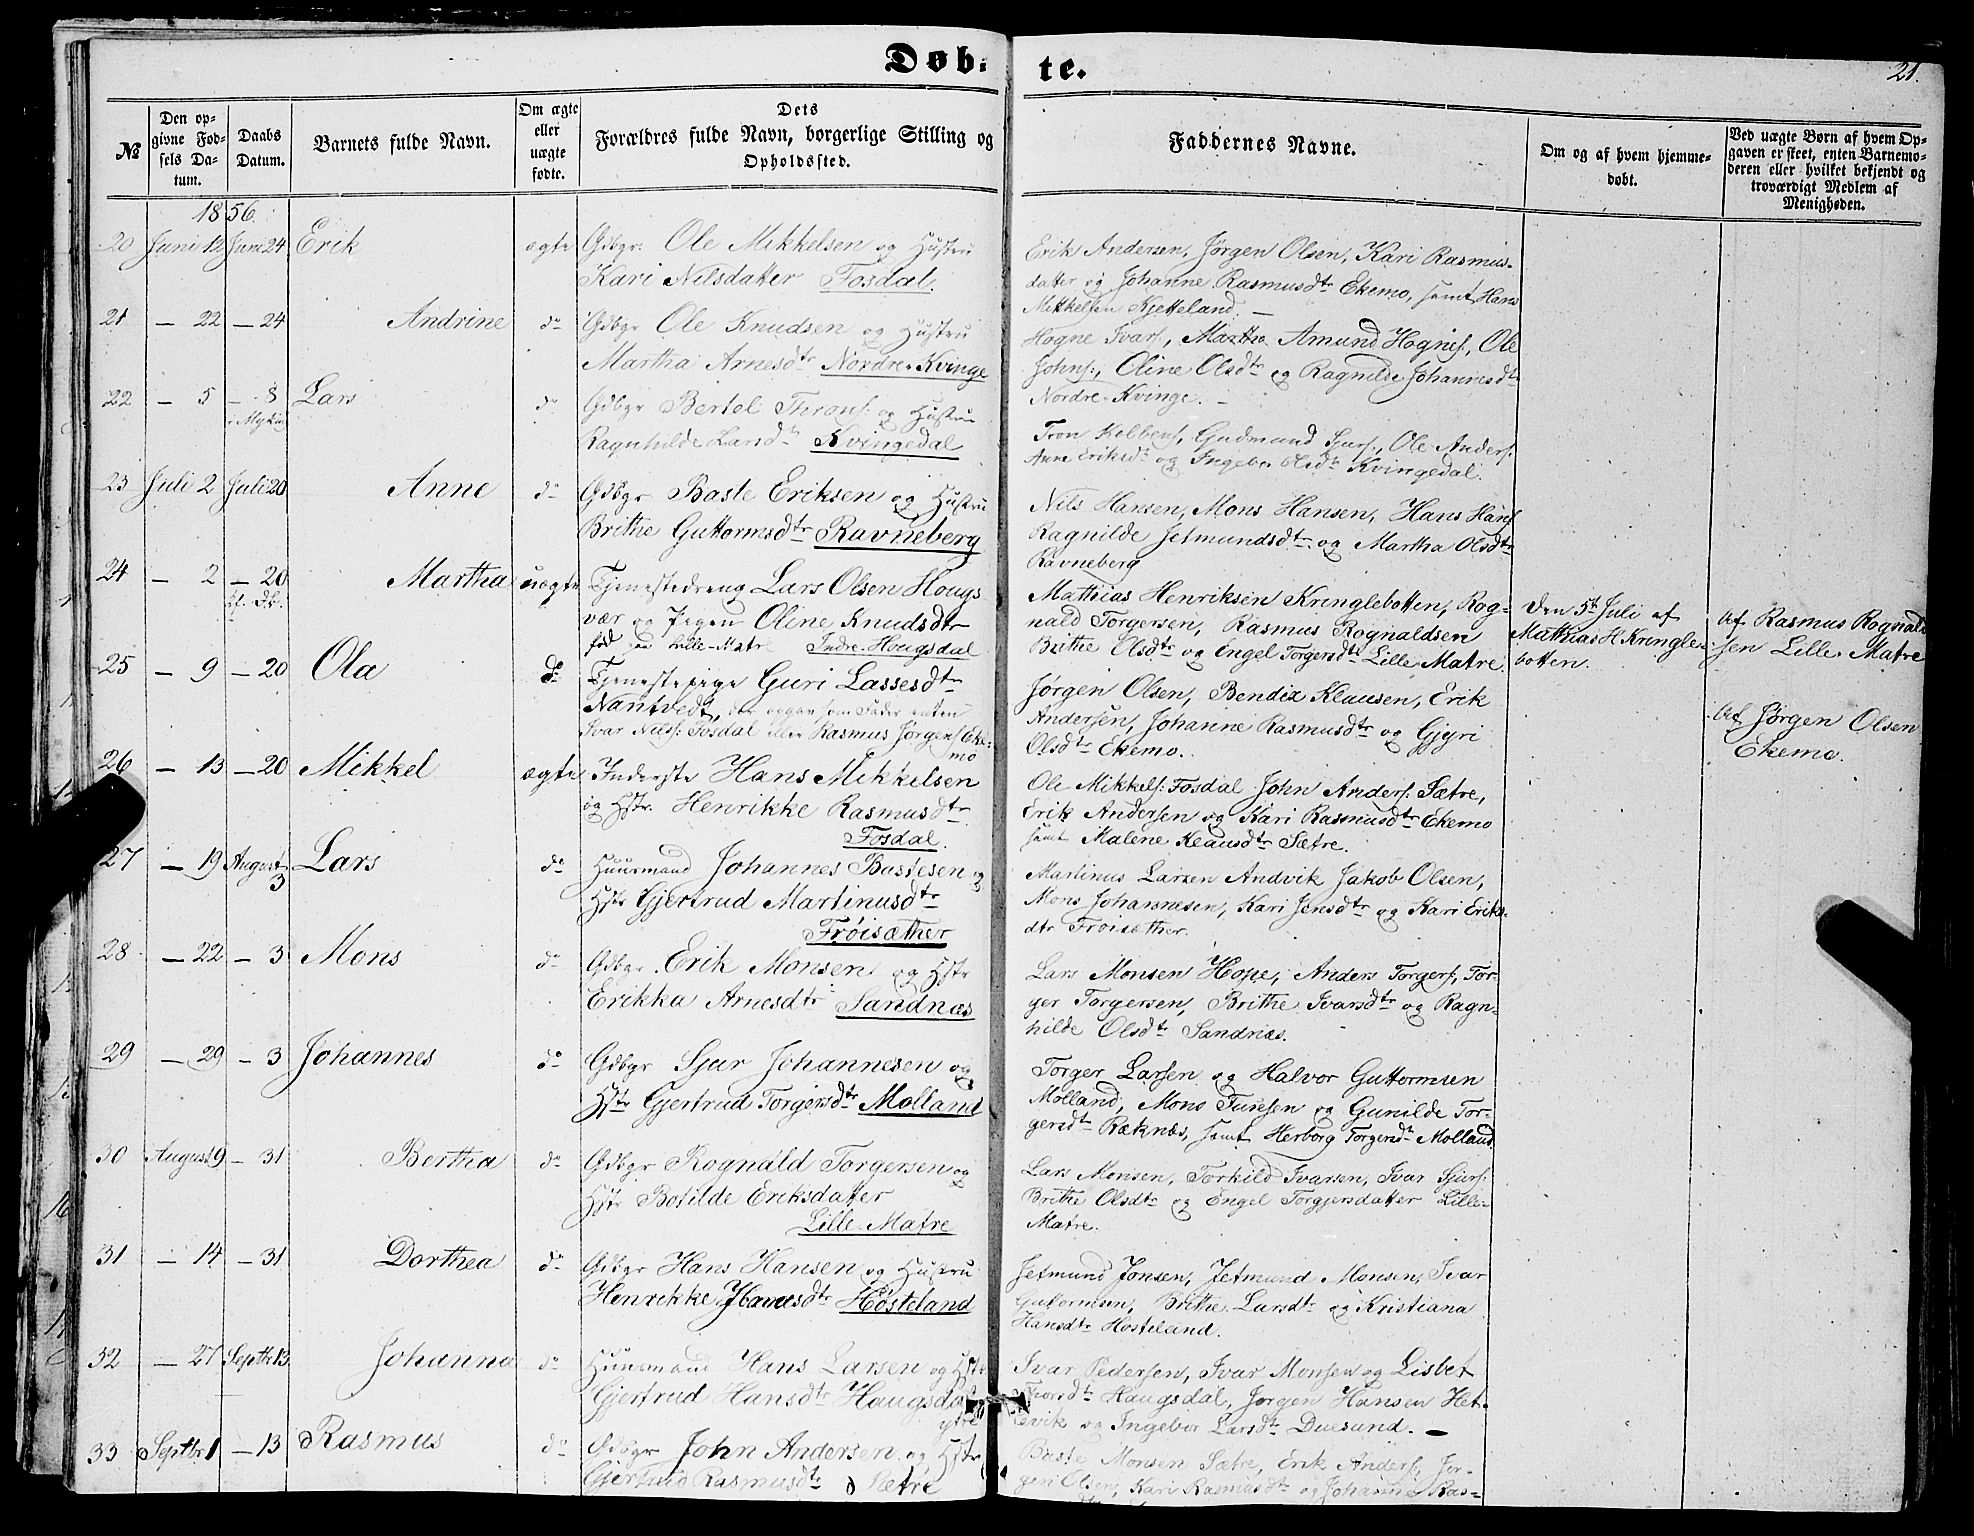 Døb-te.
21.
№
Den op-
givne Fød-
sels Da-
tum.
Daabs
Datum.
Barnets fulde Navn.
Om ægte
eller
uægte
fødte.
Dets
Forældres fulde Navn, borgerlige Stilling og
Opholdssted.
Faddernes Navne.
Om og af hvem hjemme-
døbt.
Ved uægte Børn af hvem Op-
gaven er skeet, enten Barnemo-
deren eller hvilket bekjendt og
troværdigt Medlem af
Menigheden.
1856.
20 Juni 12 Juni 24 Erik ægte Gdbgr. Ole Mikkelsen og Hustru
Kari Nilsdatter Fosdal.
Erik Andersen, Jørgen Olsen, Kari Rasmus-
datter og Johanne Rasmusdtr Ekemo, samt Hans
Mikkelsen Kjetteland. —
21 — 22 — 24 Andrine do Gdbgr Ole Knudsen og Hustru
Martha Arnesdtr Nordre-Kvinge
Hogne Ivars, Amund Hognes., Ole
Johns., Oline Olsdtr og Ragnilde Johannesdtr
Nordre-Kvinge. —
22 — 5 — 8 Lars do Gdbgr Bertel Throns. og Hustru
Ragnhilde Larsdtr Kvingedal
Tron Gudmund Sjurs., Ole Anders.
Anne Eriksdtr og Ingebr Olsdtr Kvingedal.
23 Juli 2 Juli 20 Anne do Gdbgr Baste Eriksen og Hustru
Brithe Guttormsdtr Ravneberg
Nils Hansen, Mons Hansen, Hans Hans
Ragnilde Jetmundsdtr og Martha Olsdtr
Ravneberg
24 — 2 — 20 Martha uægte Tjenestedreng Lars Olsen Hougs
vær og Pigen Oline Knudsdtr
Lille-Matre Indre-Hougsdal
Mathias Henriksen Kringlebotten, Rog-
nald Torgersen, Rasmus Rognaldsen
Brithe Olsdtr og Engel Torgersdtr Lille Matre.
Den 5t Juli af
Mathias H Kringle-
botten.
Af Rasmus Rognald
sen Lille Matre
25 — 9 — 20 Ola do Tjenestepige Guri Lassesdtr
Nantvedt, der opgav som Fader enten
Ivar Nilss. Fosdal eller Rasmus Jørgens Eke-
mo
Jørgen Olsen, Bendix Klausen, Erik
Andersen, Johanne Rasmusdtr og Gjyri
Olsdtr Ekemo.
Af Jørgen Olsen
Ekemo.
26 — 13 — 20 Mikkel ægte Inderste Hans Mikkelsen
og Hstr. Henrikke Rasmusdtr
Fosdal.
Ole Mikkels. Fosdal John Anders. Sætre,
Erik Andersen og Kari Rasmusdtr Ekemo
samt Malene Klausdtr Sætre.
27 — 19 August 3 Lars do Huusmand Johannes Bastesen og
Hstr Gjertrud Martinusdtr
Frøisæther
Martinus Larsen Andvik Jakob Olsen,
Mons Johannesen, Kari Jensdtr og Kari Eriks-
dtr Frøisæther.
28 — 22 — 3 Mons do Gdbgr. Erik Monsen og Hstr
Erikka Arnesdtr Sandnæs
Lars Monsen Hope, Anders Torgers, Tor-
ger Torgersen, Brithe Ivarsdtr og Ragn-
hilde Olsdtr Sandnæs.
29 — 29 — 3 Johannes do Gdbgr Sjur Johannesen og
Hstr Gjertrud Torgersdtr Molland
Torger Larsen og Halvor Guttormsen
Molland, Mons Furesen og Gunilde Tor-
gersdtr Ræknæs, samt Herborg Torgersdtr Molland
30 August 9 — 31 Bertha do Gdbgr Rognald Torgersen og
Hstr Botilde Eriksdatter
Lille-Matre
Lars Monsen, Torkild Ivarsen, Ivar Sjurs.
Brithe Olsdtr og Engel Torgjersdatter Lille-
Matre.
31 — 14 — 31 Dorthea do Gdbgr Hans Hansen og Hustru
Henrikke Hansdtr Høsteland
Jetmund Jonsen, Jetmund Monsen, Ivar
Guttormsen, Brithe Larsdtr og Kristiana
Hansdtr Hosteland.
32 — 27 Septbr 13 Johanna do Huusmand Hans Larsen og Hstr
Gjertrud Hansdtr Haugsdal
ytre
Ivar Pedersen, Ivar Monsen og Lisbet
Thorsdtr Haugsdal, Jørgen Hansen Het-
levik og Ingebor Larsdtr Duesund. —
33 Septbr 1 — 13 Rasmus do Gdbgr John Andersen og Hstr
Gjertrud Rasmusdtr Sætre
Baste Monsen Sætre, Erik Anders., Jør-
gen Olsen, Kari Rasmusdtr og Johanne Ras-